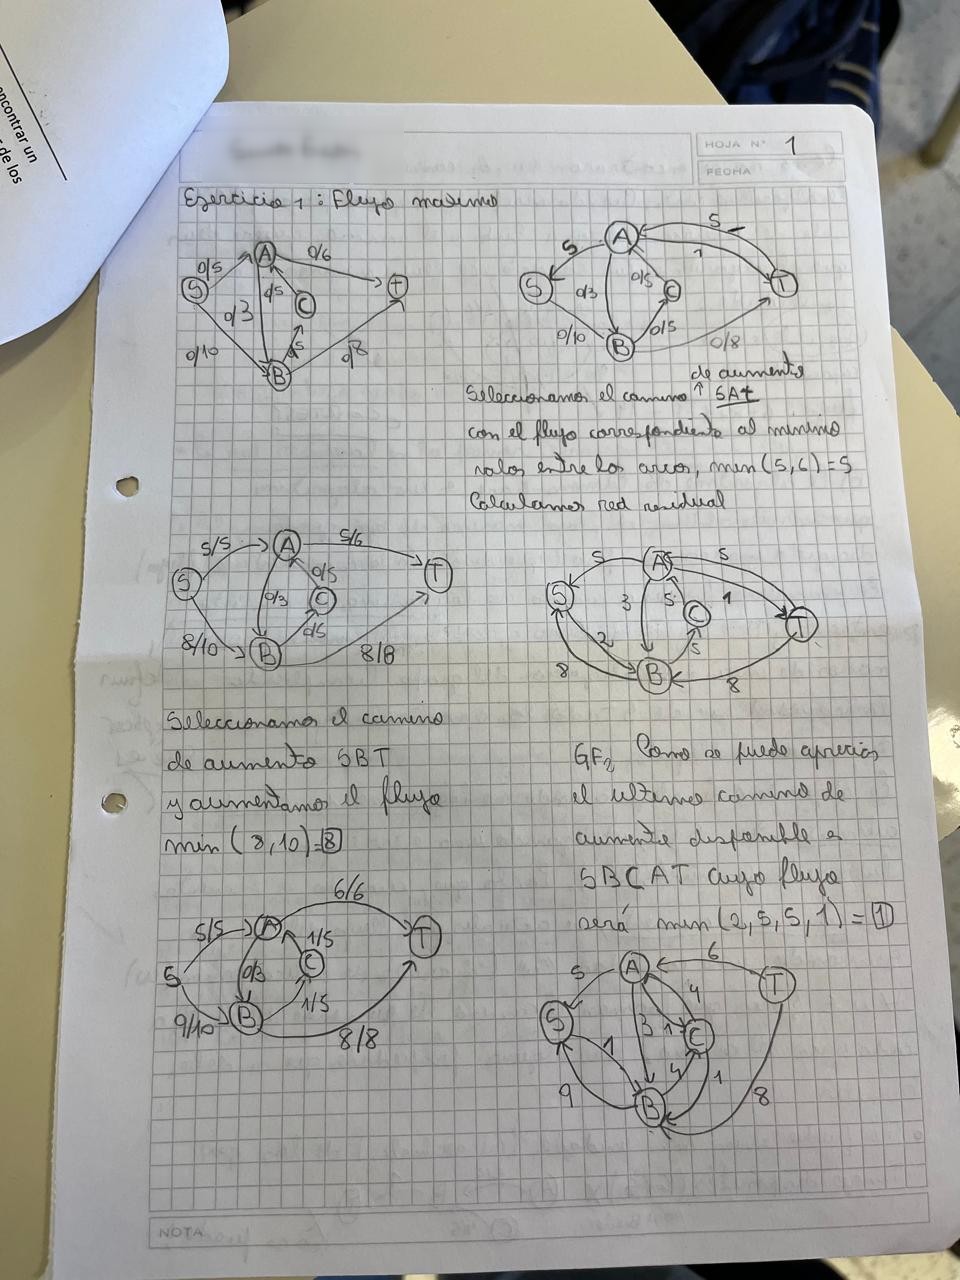 encontrar un
r de los
HOJA N° 1
FECHA
Ejercicio 1 : Flujo maximo
0/5
A
0/6
S
0/5
C
T
0/3
0/10
0/5
B
0/8
5
A
5
1
S
0/3
0/5
C
T
0/10
0/5
B
0/8
de aumento
Seleccionamos el camino ↑ SAt
con el flujo correspondiente al minimo
valor entre los arcos, min (5,6) = 5
Calculamos red residual
5/5
A
5/6
S
0/5
T
0/3
C
8/10
0/5
B
8/8
5
A
5
S
3
5
1
C
T
2
5
8
B
8
Seleccionamos el camino
de aumento SBT
y aumentamos el flujo
min (8,10) = 8
GF2 Como se puede apreciar
el ultimo camino de
aumento disponible es
SBCAT cuyo flujo
será min (2,5,5,1) = 1
6/6
5/5
A
1/5
T
S
0/3
C
9/10
B
1/5
8/8
6
5
A
T
4
S
3
1
C
1
4
1
9
B
8
NOTA